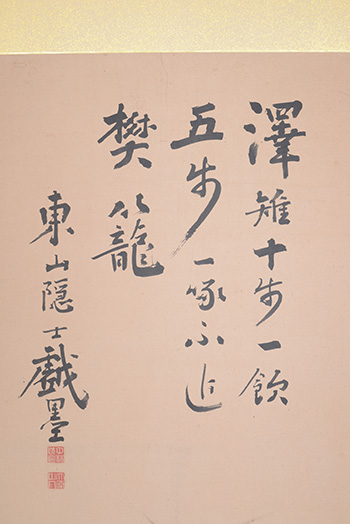 澤雉十步一飲
五步一啄不近
樊籠
東山隱士戲墨